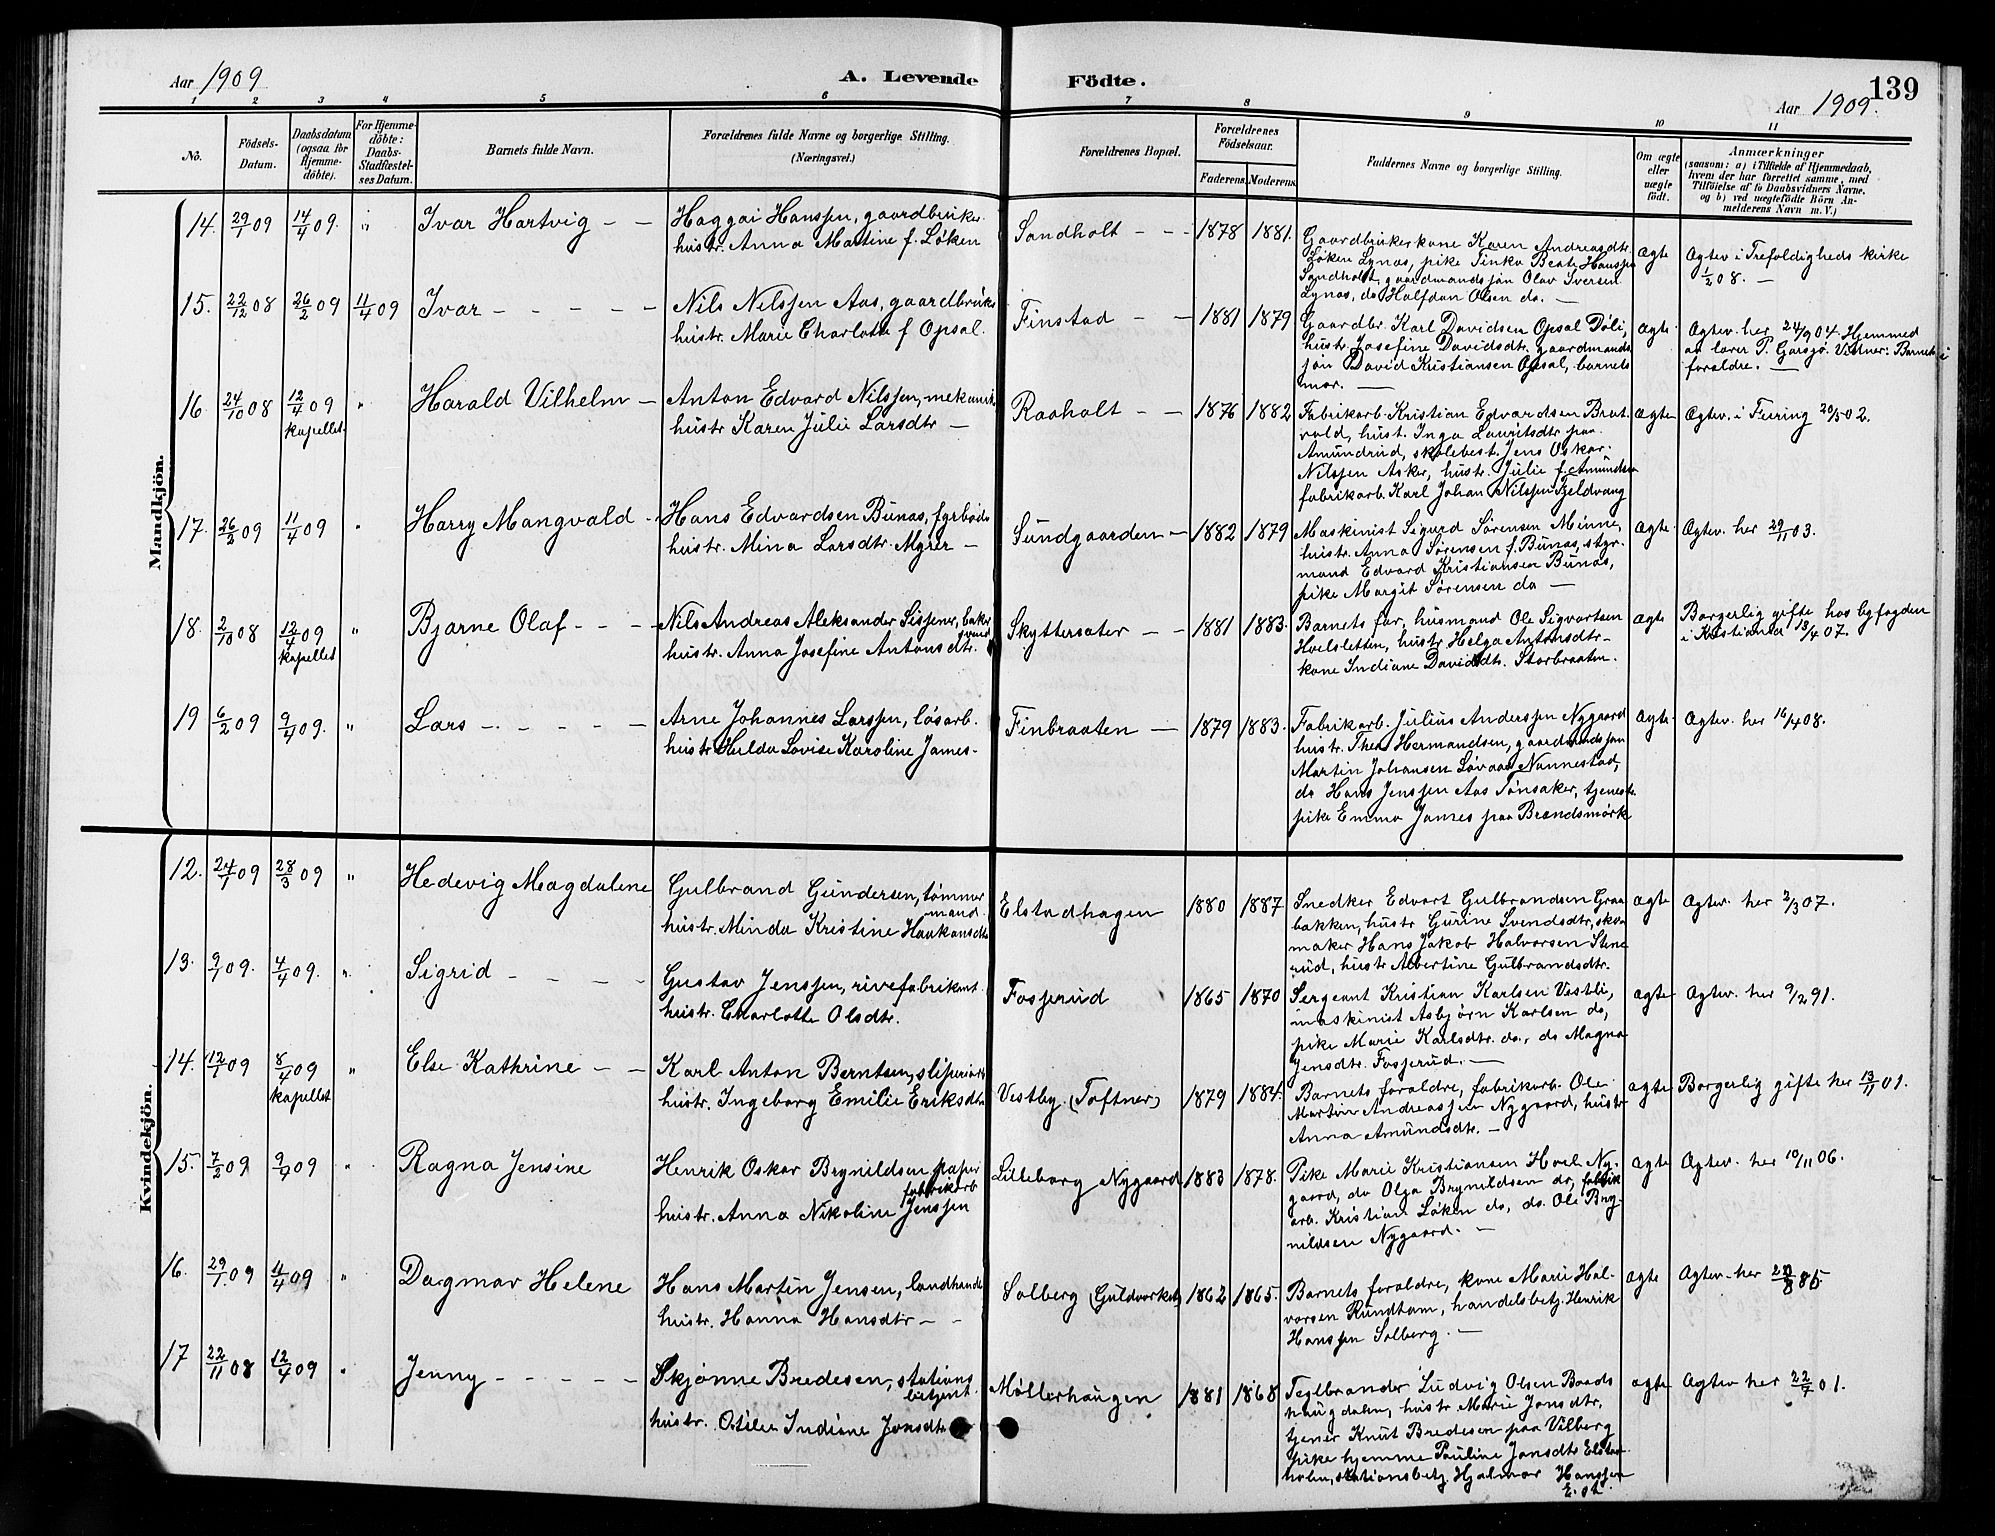 Aar 1909
A. Levende Födte.
139
Aar 1909.
1 2 3 4 5 6 7 8 9 10 11
No.
Födsels-Datum.
Daabsdatum (ogsaa for Hjemme-döbte).
For Hjemme-döbte: Daabs-Stadfæstel-ses Datum.
Barnets fulde Navn.
Forældrenes fulde Navne og borgerlige Stilling.
(Næringsvei.)
Forældrenes Bopæl.
Forældrenes Födselsaar.
Faderens. Moderens.
Faddernes Navne og borgerlige Stilling.
Om ægte eller uægte födt.
Anmærkninger
(saasom: a) i Tilfælde af Hjemmedaab,
hvem der har forrettet samme, med
Tilföielse af to Daabsvidners Navne,
og b) ved uægtefödte Börn An-
melderens Navn m. V.)
Mandkjön.
14. 29/1 09 14/4 09. " Ivar Hartvig - -
Haggai Hanssen, gaardbruker
hustr. Anna Martine f. Løken
Sandholt - - 1878 1881.
Gaardbrukerkone Karen Andreasdtr
Løken Lynæs, pike Tinka Beate Hanssen
Sandholt, gaardmandssøn Olav Iversen
Lynæs, do Halfdan Olsen do. -
ægte
Ægtev. i Trefoldigheds kirke
1/2 08. -
15. 22/12 08 26/2 09 11/4 09 Ivar - - - - -
Nils Nilssen Aas, gaardbruker
hustr. Marie Charlotte f Opsal.
Finstad - - 1881 1879
Gaardbr. Karl Davidsen Opsal Døli,
hustr. Josefine Davidsdtr. gaardmands
søn David Kristiansen Opsal, barnets
mor. -
ægte.
Ægtev. her 24/9 04. Hjemmed
av lærer P. Garsjø. Vitner: Barnets
forældre. -
16 24/10 08 12/4 09 kapellet " Harald Vilhelm -
Anton Edvard Nilssen, mekanik
hustr Karen Julie Larsdtr -
Raaholt - - 1876 1882
Fabrikarb. Kristian Edvardsen Brat
vold, hust. Inga Lauritsdtr paa
Amundrud, skolebest. Jens Oskar
Nilssen Asker, hustr. Julie f. Amundsen
fabrikarb. Karl Johan Nilssen Fjeldvang
ægte
Ægtev. i Feiring 20/5 02.
17. 26/2 09 11/4 09 " Harry Mangvald -
Hans Edvardsen Bunæs, fyrbøder
hustr. Mina Larsdtr. Myrer -
Sundgaarden - 1882 1879
Maskinist Sigurd Sørensen Minne,
hustr. Anna Sørensen f. Bunæs, styr-
mand Edvard Kristiansen Bunæs,
pike Margit Sørensen do -
ægte.
Ægtev. her 29/11 03.
18. 2/10 08 12/4 09 kapellet " Bjarne Olaf - - -
Nils Andreas Aleksander Sissener, baker
svend
hustr. Anna Josefine Antonsdtr.
Skyttersæter - - 1881 1883.
Barnets far, husmand Ole Sigvartsen
Hoelsletten, hustr. Helga Antonsdtr-
kone Indiane Davidsdtr. Storbraaten.
ægte
Borgerlig gifte hos byfogden
i Kristiania 13/4 07.
19 6/2 09 9/4 09. " Lars - - - - -
Arne Johannes Larssen, løsarb.
hustr. Hulda Lovise Karoline James-
Finbraaten - 1879 1883.
Fabrikarb. Julius Anderssen Nygaard
hustr. Thea Hermandsen, gaardmandssøn
Martin Johansen Løvaas Nannestad,
do Hans Jenssen Aas Tønsaker, tjeneste
pike Emma James paa Brændsmork
ægte.
Ægtev. her 16/4 08.
Kvindekjön.
12. 24/1 09 28/3 09 " Hedevig Magdalene
Gulbrand Gundersen, tømmer
mand
hustr. Minda Kristine Haakonsdtr
Elstadhagen 1880 1887
Snedker Edvart Gulbrandsen Graa
bakken, hustr Gurine Svendsdtr, sko
maker Hans Jakob Halvorsen Stene
rud, hustr Albertine Gulbrandsdtr.
ægte
Ægtev. her 2/3 07.
13. 9/1 09. 4/4 09. " Sigrid - - - -
Gustav Jenssen, rivefabrikant
hustr. Charlotte Olsdtr.
Fosserud 1865 1870
Sergeant Kristian Karlsen Vestli,
maskinist Asbjørn Karlsen do,
pike Marie Karlsdtr. do., do Magna
Jensdtr. Fosserud. -
ægte
Ægtev. her 9/2 91.
14. 12/1 09 8/4 09 kapellet " Else Kathrine - -
Karl Anton Berntsen, sliperiarb
hustr. Ingeborg Emilie Eriksdtr
Vestby (Toftner) 1879 1884.
Barnets forældre, fabrikarb. Ole
Martin Andreassen Nygaard, hustr
Anna Amundsdtr. -
ægte
Borgerlig gifte her 13/11 01.
15. 7/2 09 9/4 09 " Ragna Jensine
Henrik Oskar Brynildsen, papir
fabrikarb
hustr. Anna Nikoline Jenssen
Lilleborg Nygaard 1883 1878.
Pike Marie Kristiansen Hoel Ny-
gaard, do Olga Brynildsen do, fabrik
arb. Kristian Løken do, do. Ole Bry-
nildsen Nygaard. -
ægte
Ægtev. her 10/11 06.
16. 29/1 09 11/4 09 " Dagmar Helene
Hans Martin Jensen, landhandl
hustr. Hanna Hansdtr - -
Solberg (Guldverket) 1862 1865.
Barnets forældre, kone Marie Hal-
vorsen Rundtom, handelsbetj. Henrik
Hanssen Solberg. -
ægte
Ægtev. her 85.
17 22/11 08 12/4 09 " Jenny - - - - -
Skjønne Bredesen, stations
betjent
hustr. Otilie Indiane Jonsdtr
Møllerhaugen 1881 1868
Teglbrænder Ludvig Olsen Baads
haugdalen, hustr Marie Jonsdtr,
tjener Knut Bredesen paa Vilberg
pike hjemme Pauline Jonsdtr Elstad
holm, stationsbetj. Hjalmar Hanssen
E. st.
ægte
Ægtev her 22/7 01.